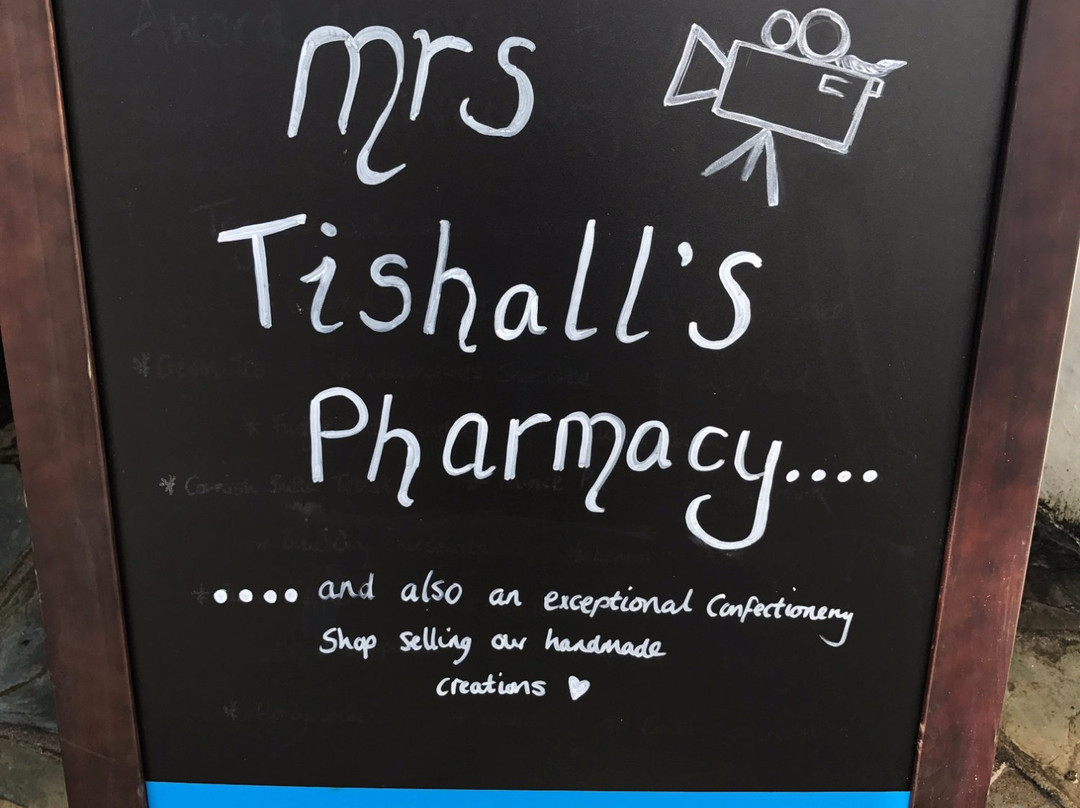 mrs
Tishall's
Pharmacy....
.... and also an exceptional Confectionery
Shop selling our handmade
creations ♥